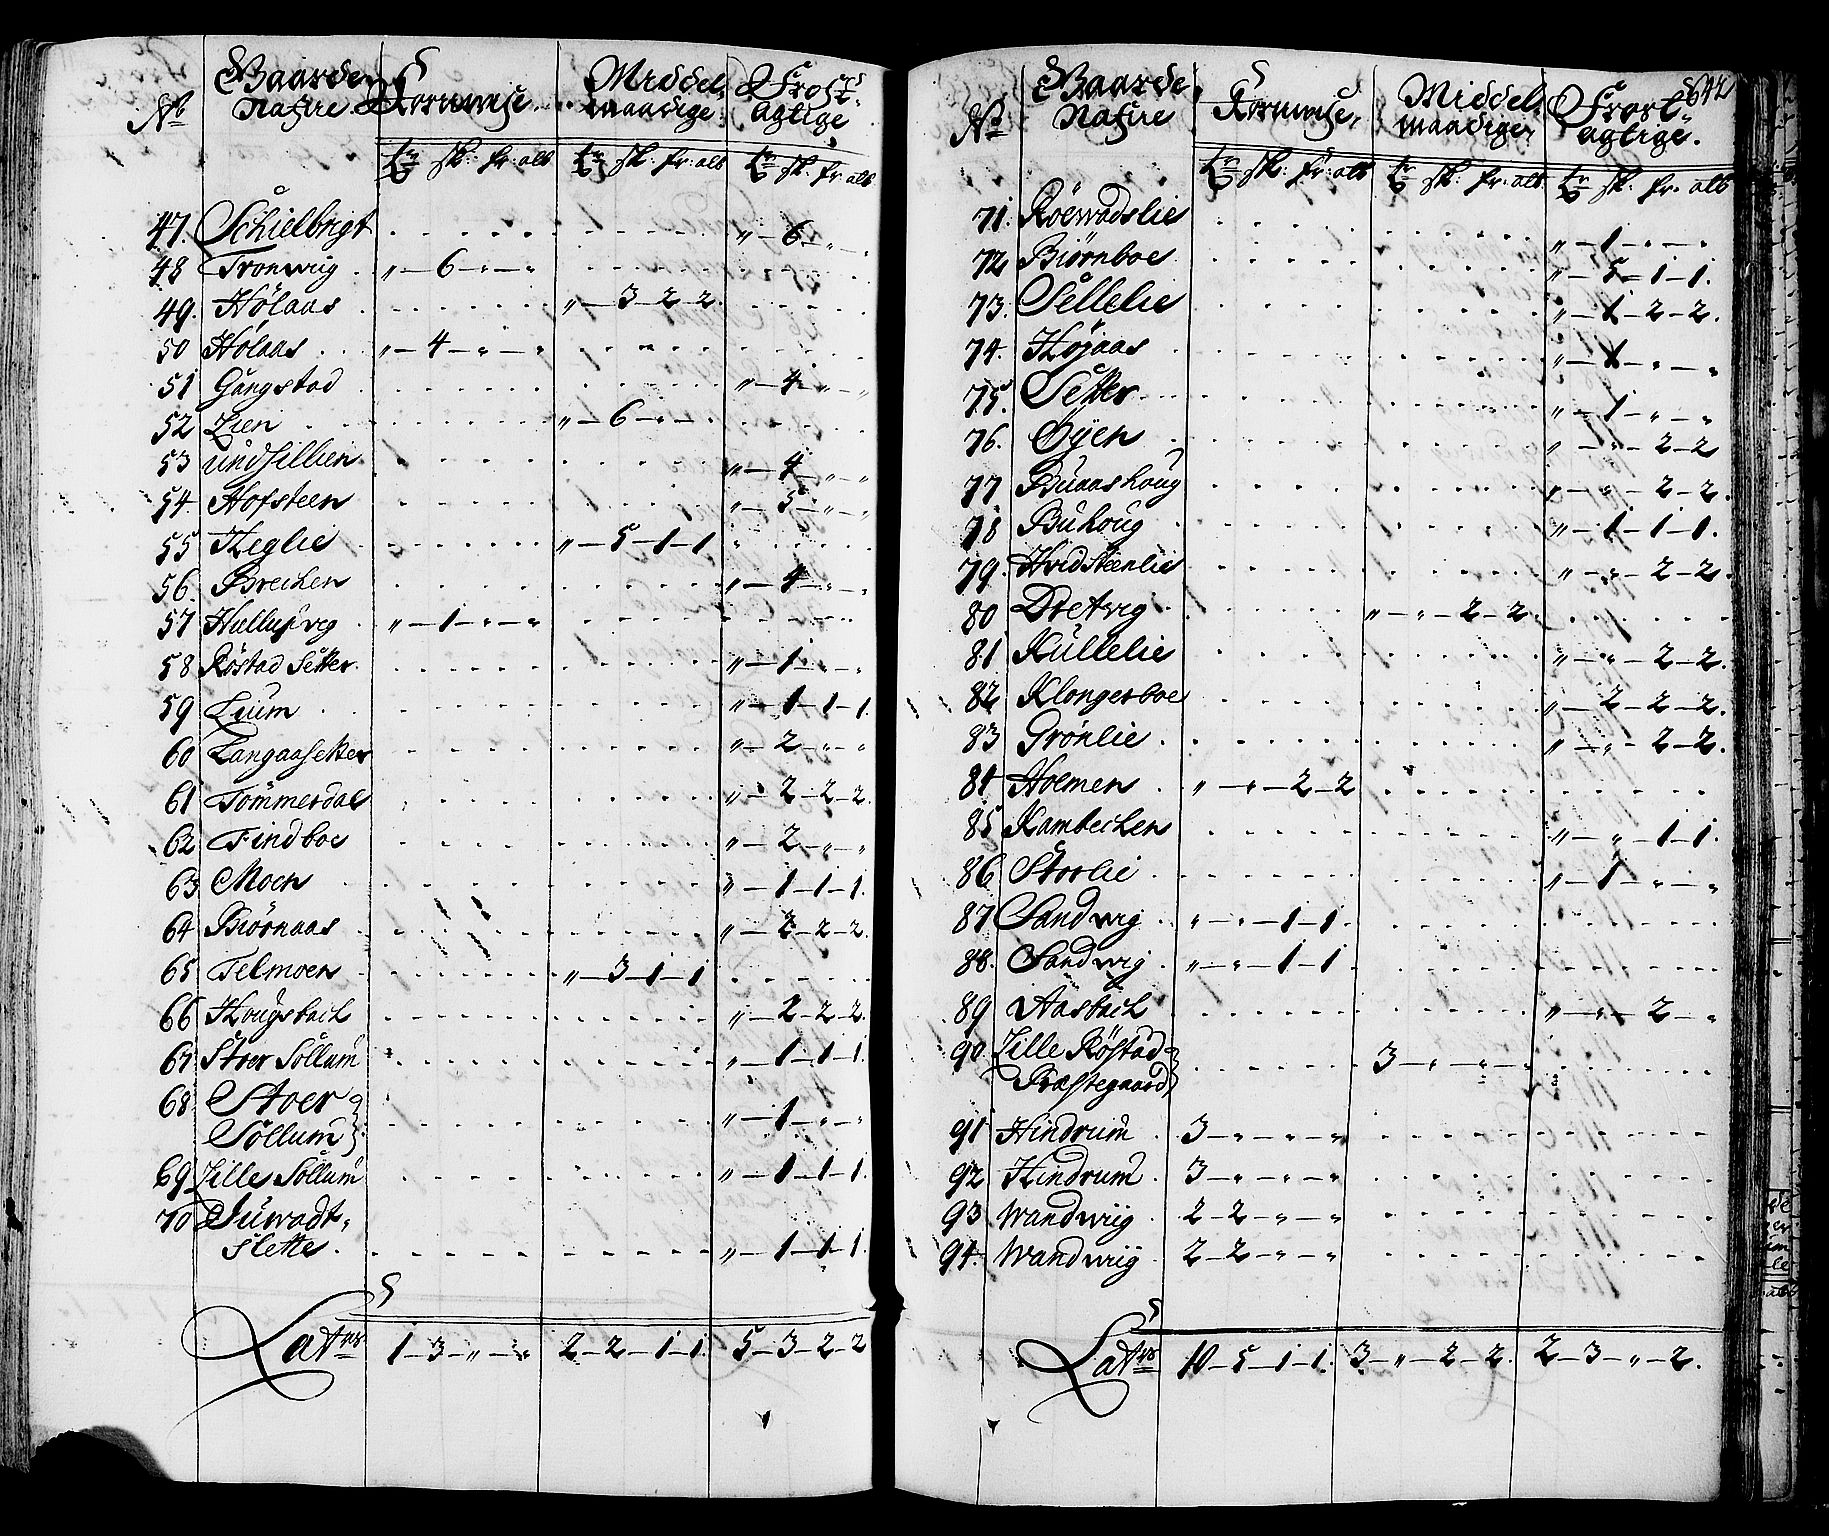 No Gaarde Nafne Kornvisse Middelmaadige Frostagtige
sk: fr: alb sk: fr: alb sk: fr: alb
47. Schielbrigt " — 6 — " "
48 Tronwiig " — 6 — " — "
49. Hølaas " — 3 — 2 — 2
50 Hølaas " — 4 — " — "
51 Gangstad " — 4 — " "
52 Lien " — 6 — " — "
53 Undsillien " — 4 — " — "
54 Hofsteen " — 5 — " — "
55 Heglie " — 5 — 1 — 1
56. Brechen " — 4 — " — "
57 Hallusveg " — 1 — " — "
58 Røstad Setter " — 1 — " — "
59 Luum " — 1 — 1 — 1
60 Langaasetter " — 2 — " — "
61 Tømmerdal " — 2 — 2 — 2
62 Findboe " — 2 — " — "
63 Moen " — 1 — 1 — 1
64 Biørnaas " — 2 — 2 — 2
65 Telmoen " — 3 — 1 — 1
66 Hougsbach " — 2 — 2 — 2
67 Stoer Søllum " — 1 — 1 — 1
68 Stoer
Søllum " — 1 — " — "
69 Lille Søllum " — 1 — 1 — 1
70 Duwadt-
slette. " — 1 — 1 — 1
Lat 1 — 3 — " — " 2 — 2 — 1 — 1 5 — 3 — 2 — 2
642
No Gaarde Nafne Kornvisse Middelmaadige Frostagtige.
sk: fr: alb sk: fr: alb sk: fr: alb
71. Röewadslie " — 1 — " — "
72 Biørnboe " — 5 — 1 — 1.
73. Sellelie " — 1 — 2 — 2.
74. Højaas " — 1 — " — "
75. Setter " — 1 — " — "
76. Øyen " — " — 2 — 2
77 Buaashoug " — " — 2 — 2.
78 Buhoug " — 1 — 1 — 1.
79. Hvidsteenlie " — " — 2 — 2.
80 Dretvig " — " — 2 — 2
81 Kullelie " — " — 2 — 2.
82 Klongerboe " — 2 — 2 — 2.
83 Grønlie " — " — 2 — 2.
84 Holmen " — " — 2 — 2
85 Kambechen " — " — 1 — 1.
86 Storlie " — 1 — " — "
87 Sandwig " — " — 1 — 1.
88. Sandwig " — " — 1 — 1
89 Aasbach " — " — 2 — "
90 Lille Røstad
Præstegaard 3 — " — " — "
91 Hindrum 3 — " — " — "
92 Hindrum 3 — " — " — "
93 Wandwiig 2 — 2 — " — "
94. Wandwiig 2 — 2 — " — "
Lat 10 — 5 — 1 — 1. 3 — " — 2 — 2. 2 — 3 — " — 2.